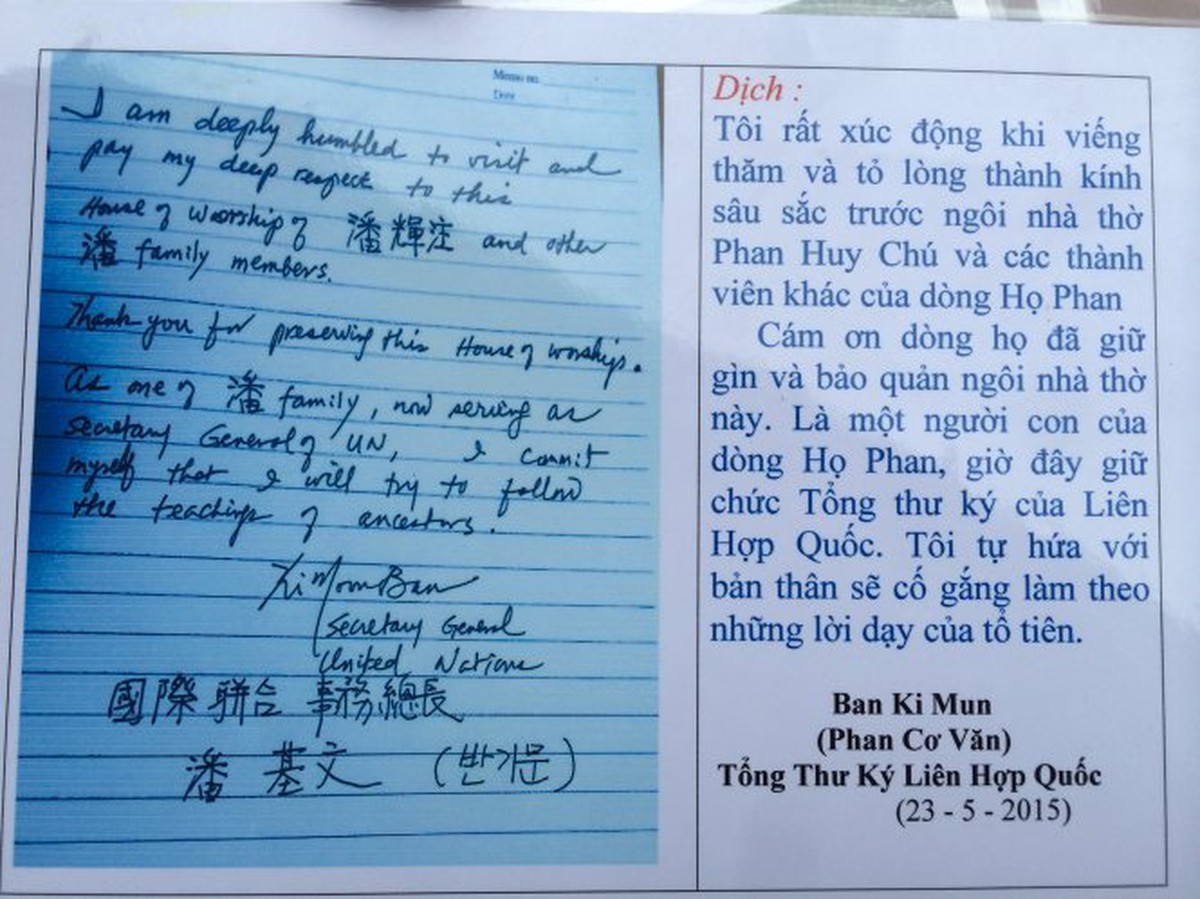 Memo no.
Date
I am deeply humbled to visit and
pay my deep respect to this
House of worship of 潘輝注 and other
潘 family members.
Thank you for preserving this House of worship.
As one of 潘 family, now serving as
Secretary General of UN, I commit
myself that I will try to follow
the teachings of ancestors.
Ki Moon Ban
Secretary General
United Nations
國際聯合 事務總長
潘基文 (반기문)
Dịch :
Tôi rất xúc động khi viếng
thăm và tỏ lòng thành kính
sâu sắc trước ngôi nhà thờ
Phan Huy Chú và các thành
viên khác của dòng Họ Phan
Cám ơn dòng họ đã giữ
gìn và bảo quản ngôi nhà thờ
này. Là một người con của
dòng Họ Phan, giờ đây giữ
chức Tổng thư ký của Liên
Hợp Quốc. Tôi tự hứa với
bản thân sẽ cố gắng làm theo
những lời dạy của tổ tiên.
Ban Ki Mun
(Phan Cơ Văn)
Tổng Thư Ký Liên Hợp Quốc
(23 - 5 - 2015)